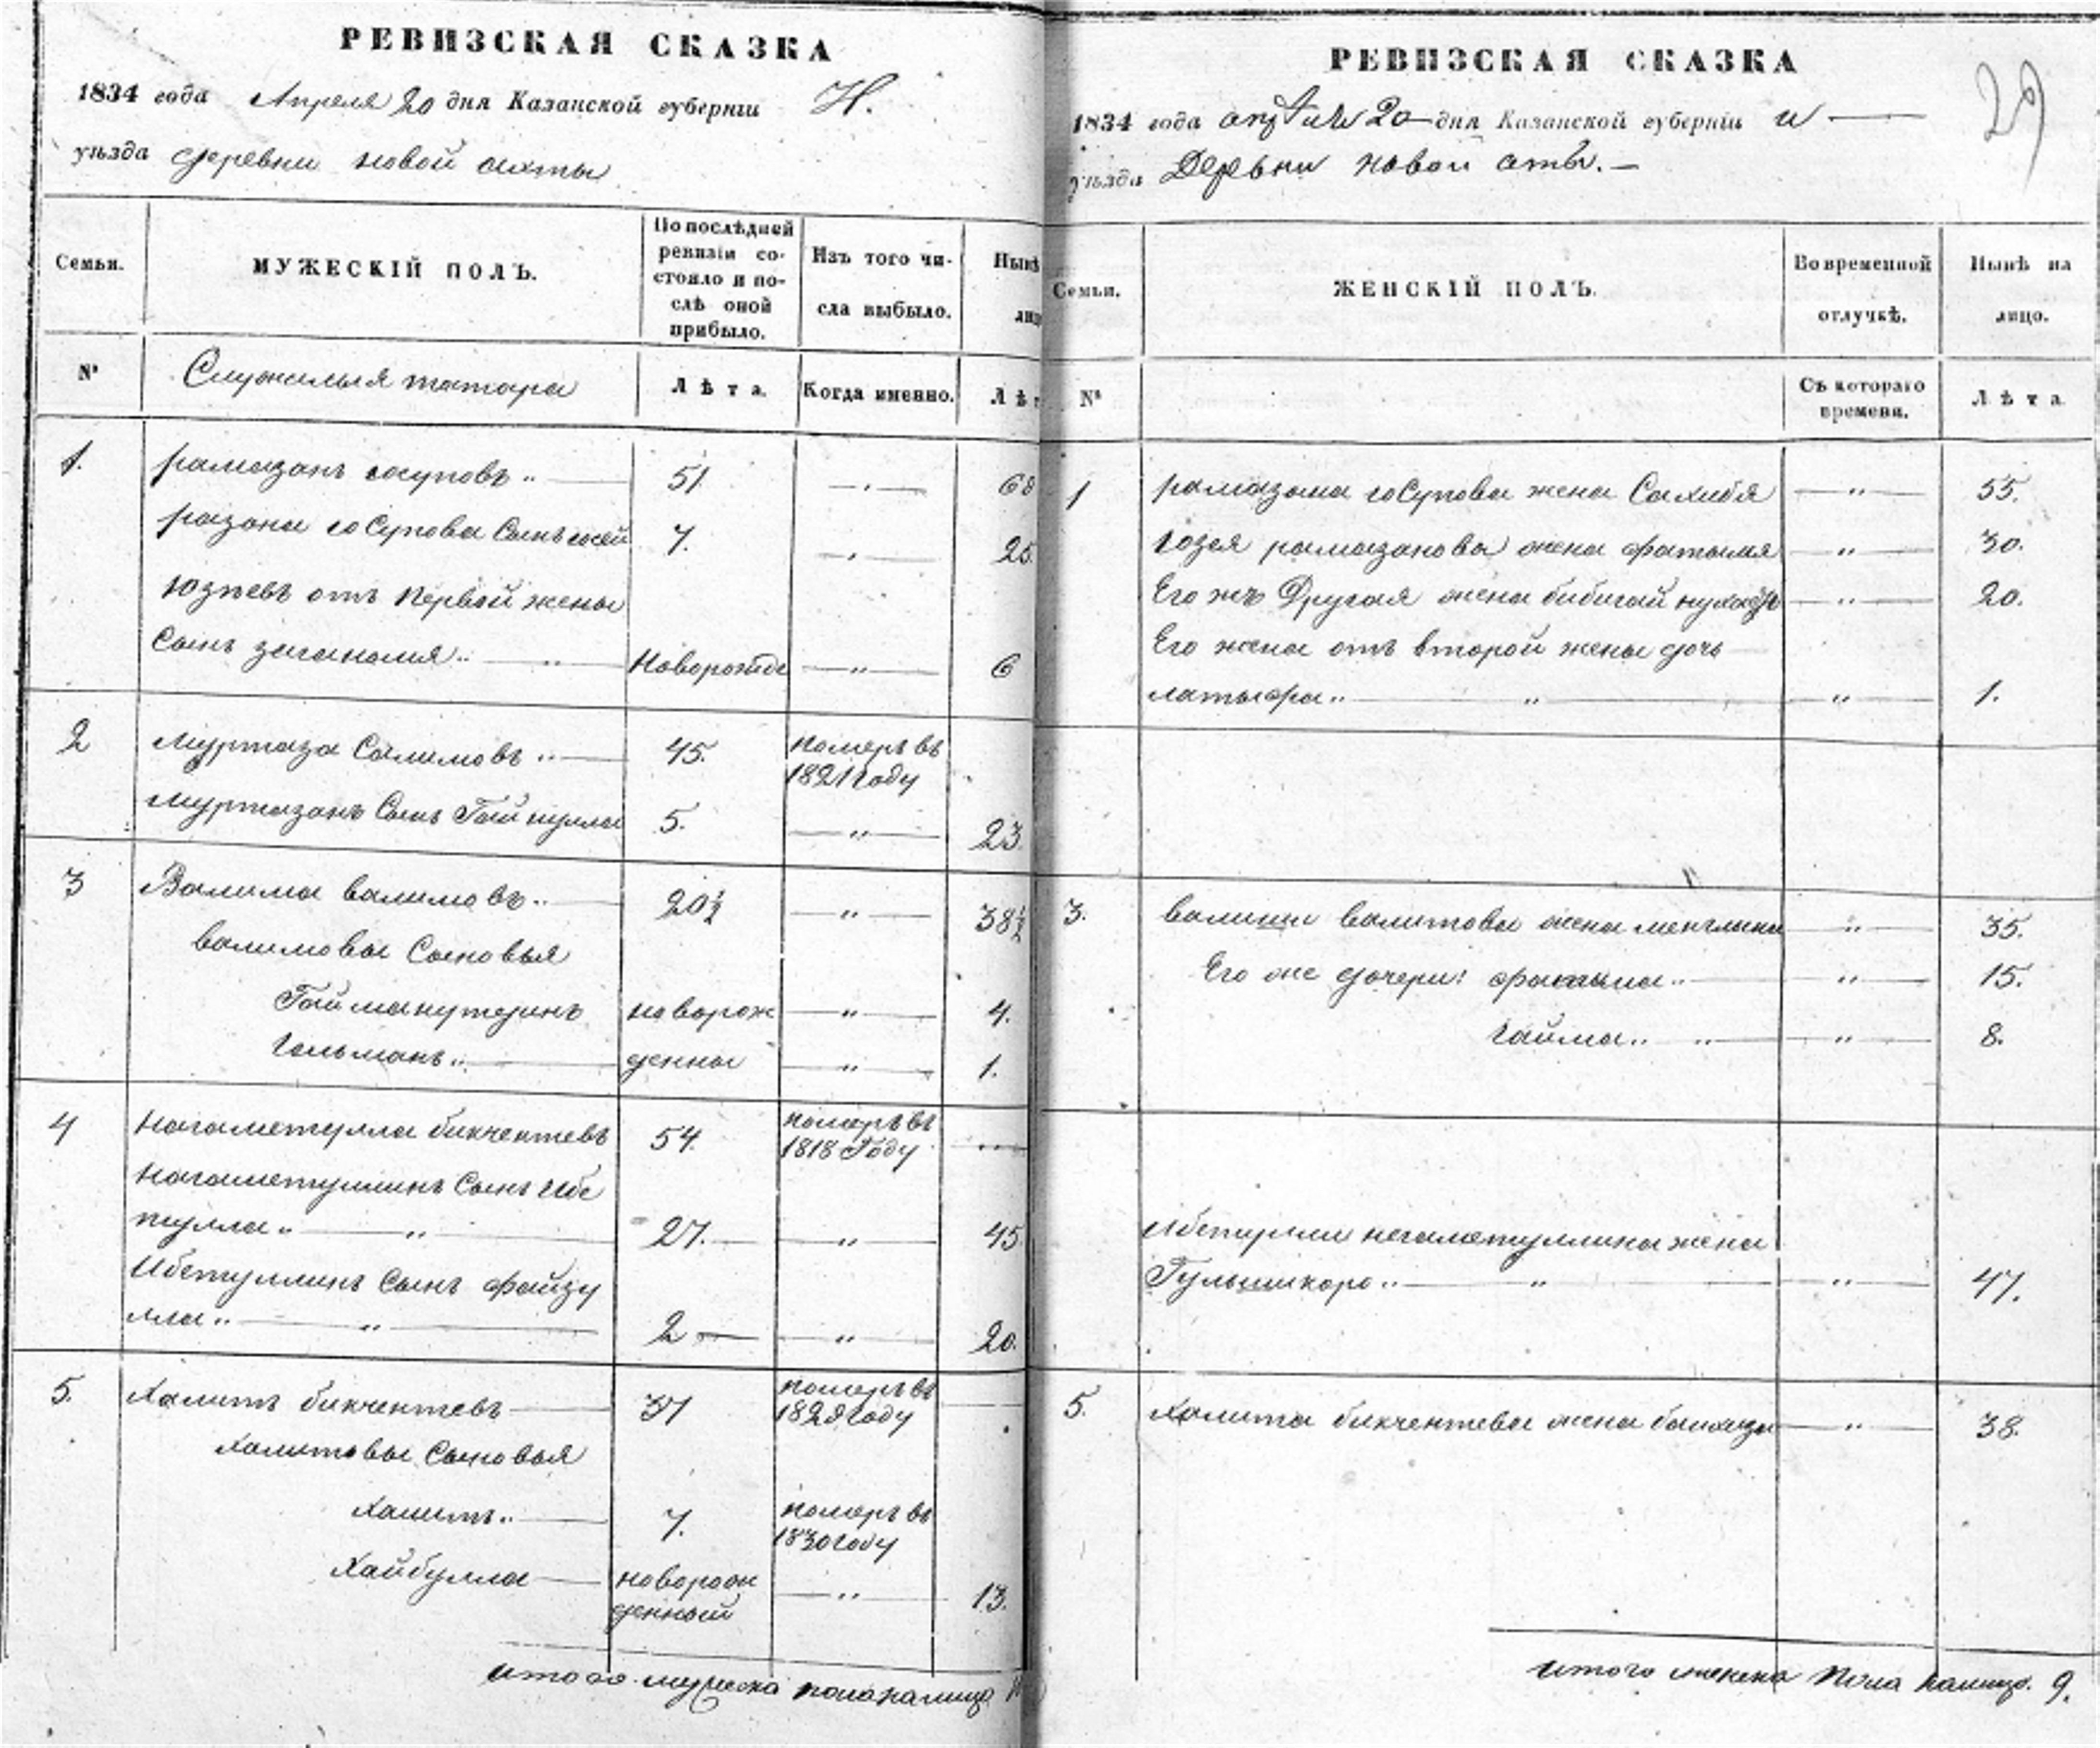 РЕВИЗСКАЯ СКАЗКА
1834 года Апреля 20 дня Казанской губерніи Н.
уѣзда деревни новой
Семьи.
МУЖЕСКІЙ ПОЛЪ.
По послѣдней ревизіи состояло и послѣ оной прибыло.
Изъ того числа выбыло.
Нынѣ
лиц
№
Служилыя татара
Лѣта.
Когда именно.
Лѣт
1. рамазанъ юсуповъ „ 51 — 68
юсупова Сынъ 7. — 25.
юзѣевъ отъ первой жены
Сынъ „ Новорожде — „ — 6
2 Муртаза Салимовъ „ 45. померъ въ
1821 году
Муртазанъ Сынъ 5. — „ — 23.
3 Валима валимовъ „ 20½ — „ — 38½
валимовы Сыновья
новорож — „ — 4.
„ денны — „ — 1.
4 Нагаметулла бикчентевъ 54. померъ въ
1818 году
Нагаметуллинъ Сынъ Ибе
тулла „ 27. — „ — 45
Ибетуллинъ Сынъ файзу
лла „ 2 — „ — 20.
5. Халитъ бикчентевъ 37 померъ въ
году
Халитовы Сыновья
„ 7. померъ въ
1830 году
Хайбулла новорож — „ — 13.
денный
итого мужеска пола налицо
РЕВИЗСКАЯ СКАЗКА
1834 года 20 дня Казанской губерніи и
уѣзда Деревни новой
29
Семьи.
ЖЕНСКІЙ ПОЛЪ.
Во временной отлучкѣ.
Нынѣ на лицо.
№
Съ котораго времени.
Лѣта
1 рамазана юсупова жена Сахибя — „ — 55.
юзея рамазанова жена фатымя — „ — 30.
Его жъ Другая жена — „ — 20.
Его жена отъ второй жены дочь
латыфа „ — „ — 1.
3. валиши валитова жена — „ — 35.
Его же дочери: фатыма „ — „ — 15.
гайма „ — „ — 8.
Ибетулли негаметуллина жена
„ — „ — 47.
5. Халита бикчентева жена — „ — 38.
итого женска пола налицо. 9.